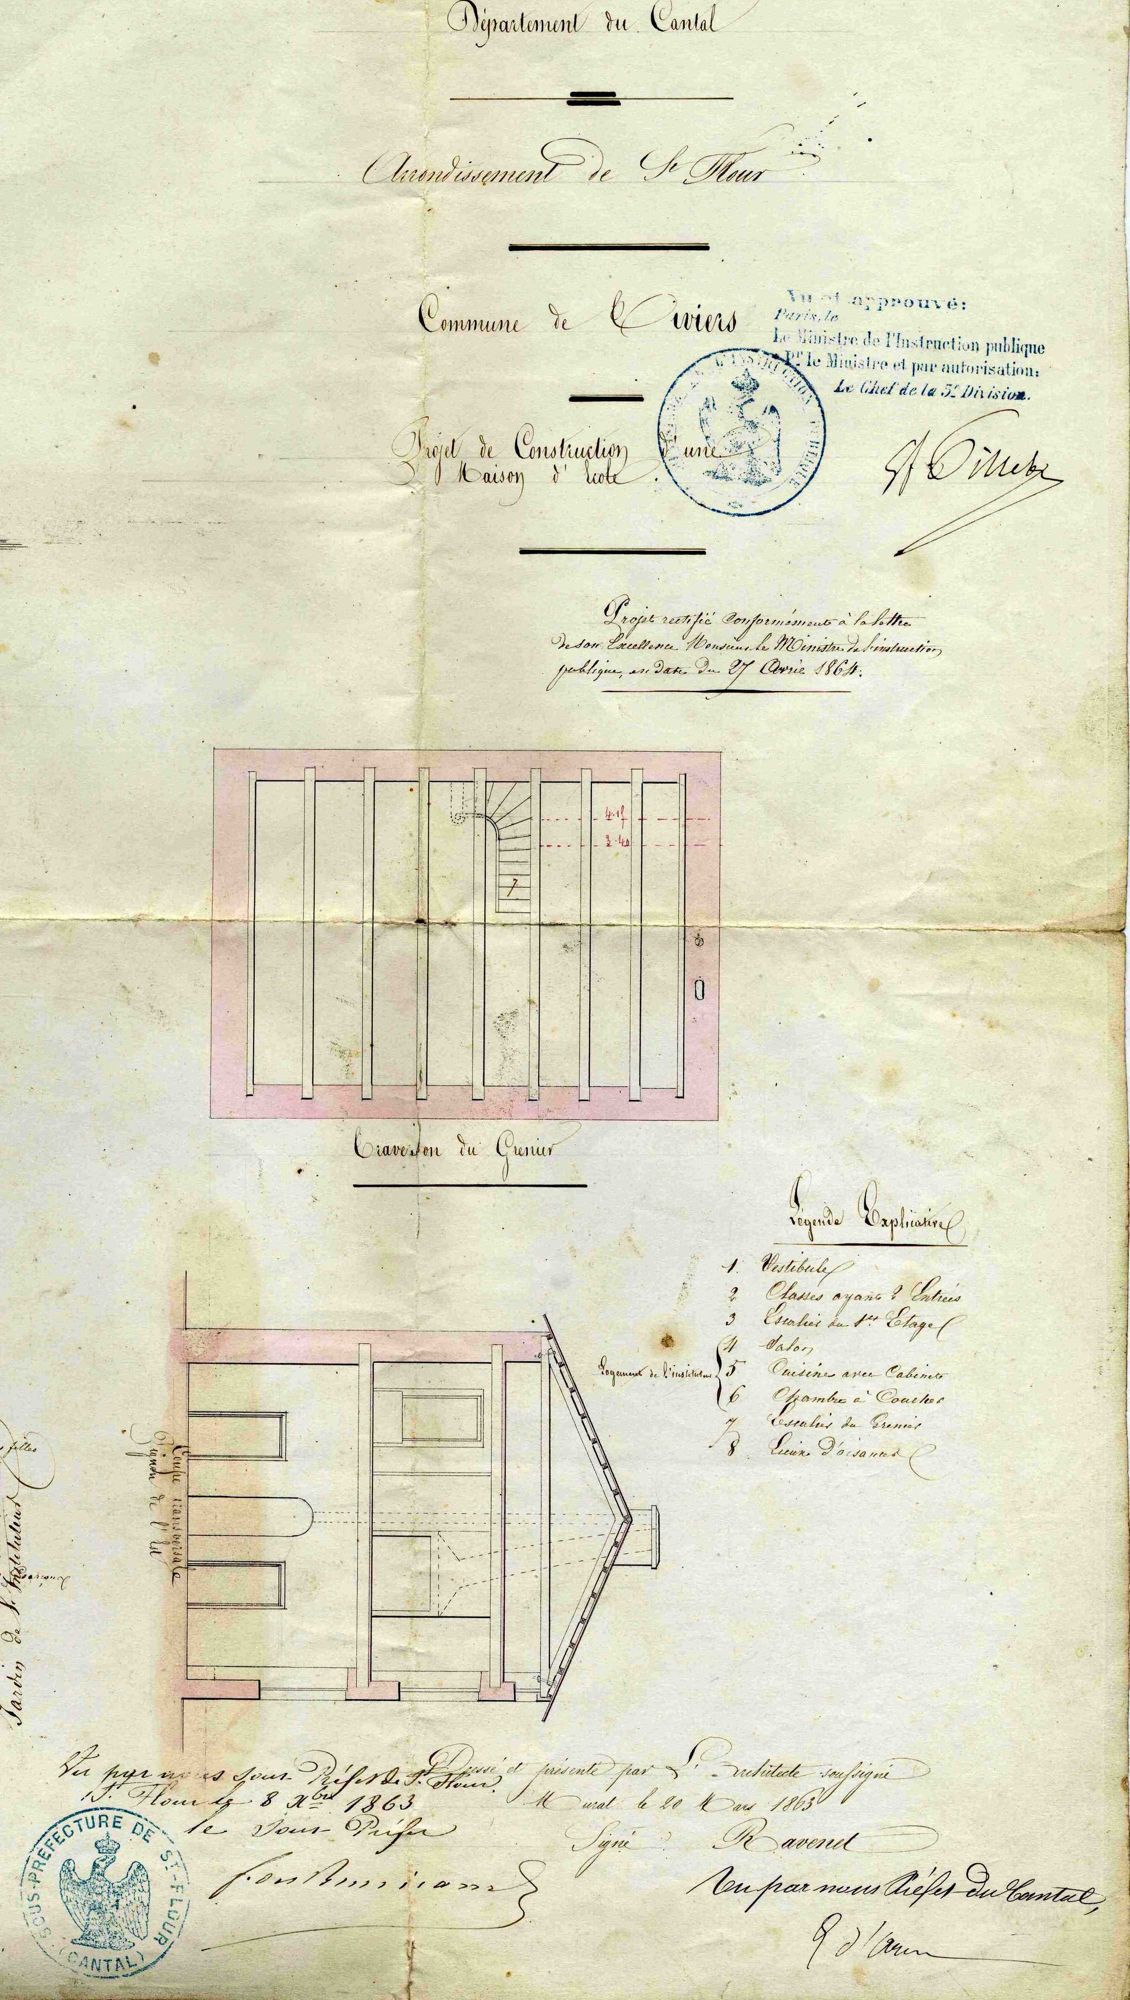 Département du Cantal
Arrondissement de St Flour
Commune de Tiviers
Vu et approuvé:
Paris, le
Le Ministre de l'Instruction publique
Pr. le Ministre et par autorisation:
Le Chef de la 3e Division.
Projet de Construction d'une
Maison d'Ecole.
Projet rectifié conformément à la lettre
de son Excellence Monsieur le Ministre de l'instruction
publique, en date du 27 Avril 1864.
3.40
7
Traveison du Grenier
Légende Explicative
1. Vestibule
2 Classes ayant 2 Entrées
3 Escalier du 1er Etage
4 Salon
Logement de l'instituteur
5 Cuisine avec Cabinet
6 Chambre à Coucher
7 Escalier du Grenier
8 Lieux D'aisances
Coupe transversale
filles
Jardin de l'Instituteur
Vu par nous Sous Préfet de St. Flour.
St. Flour le 8 Xbre 1863
le Sous Préfet
Dressé et présenté par L'Architecte soussigné
Murat le 20 Mars 1863
Signé: Ravenet
SOUS-PRÉFECTURE DE ST-FLOUR
(CANTAL)
Vu par nous Préfet du Cantal,